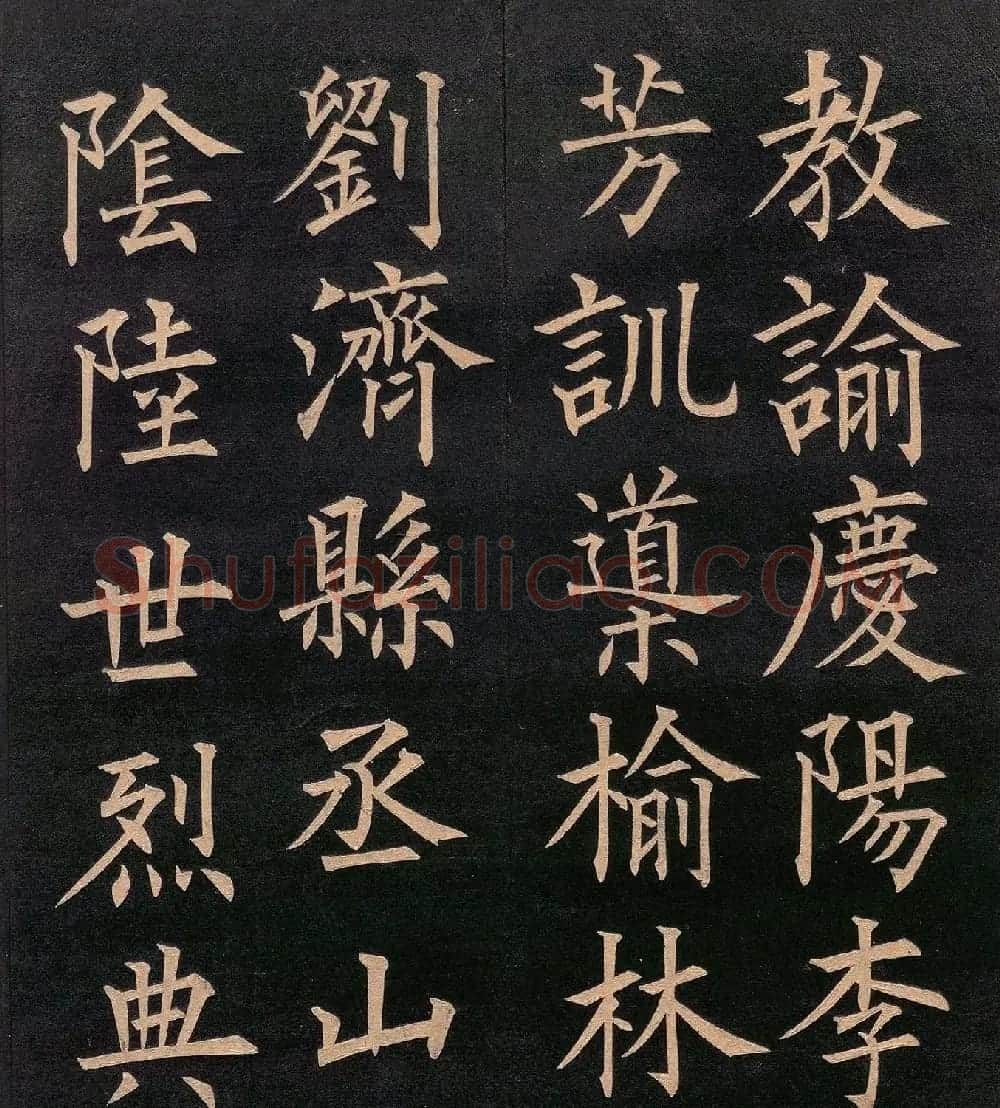 教諭慶陽李
芳訓導榆林
劉濟縣丞山
陰陸世烈典
Shufaziliao.COM